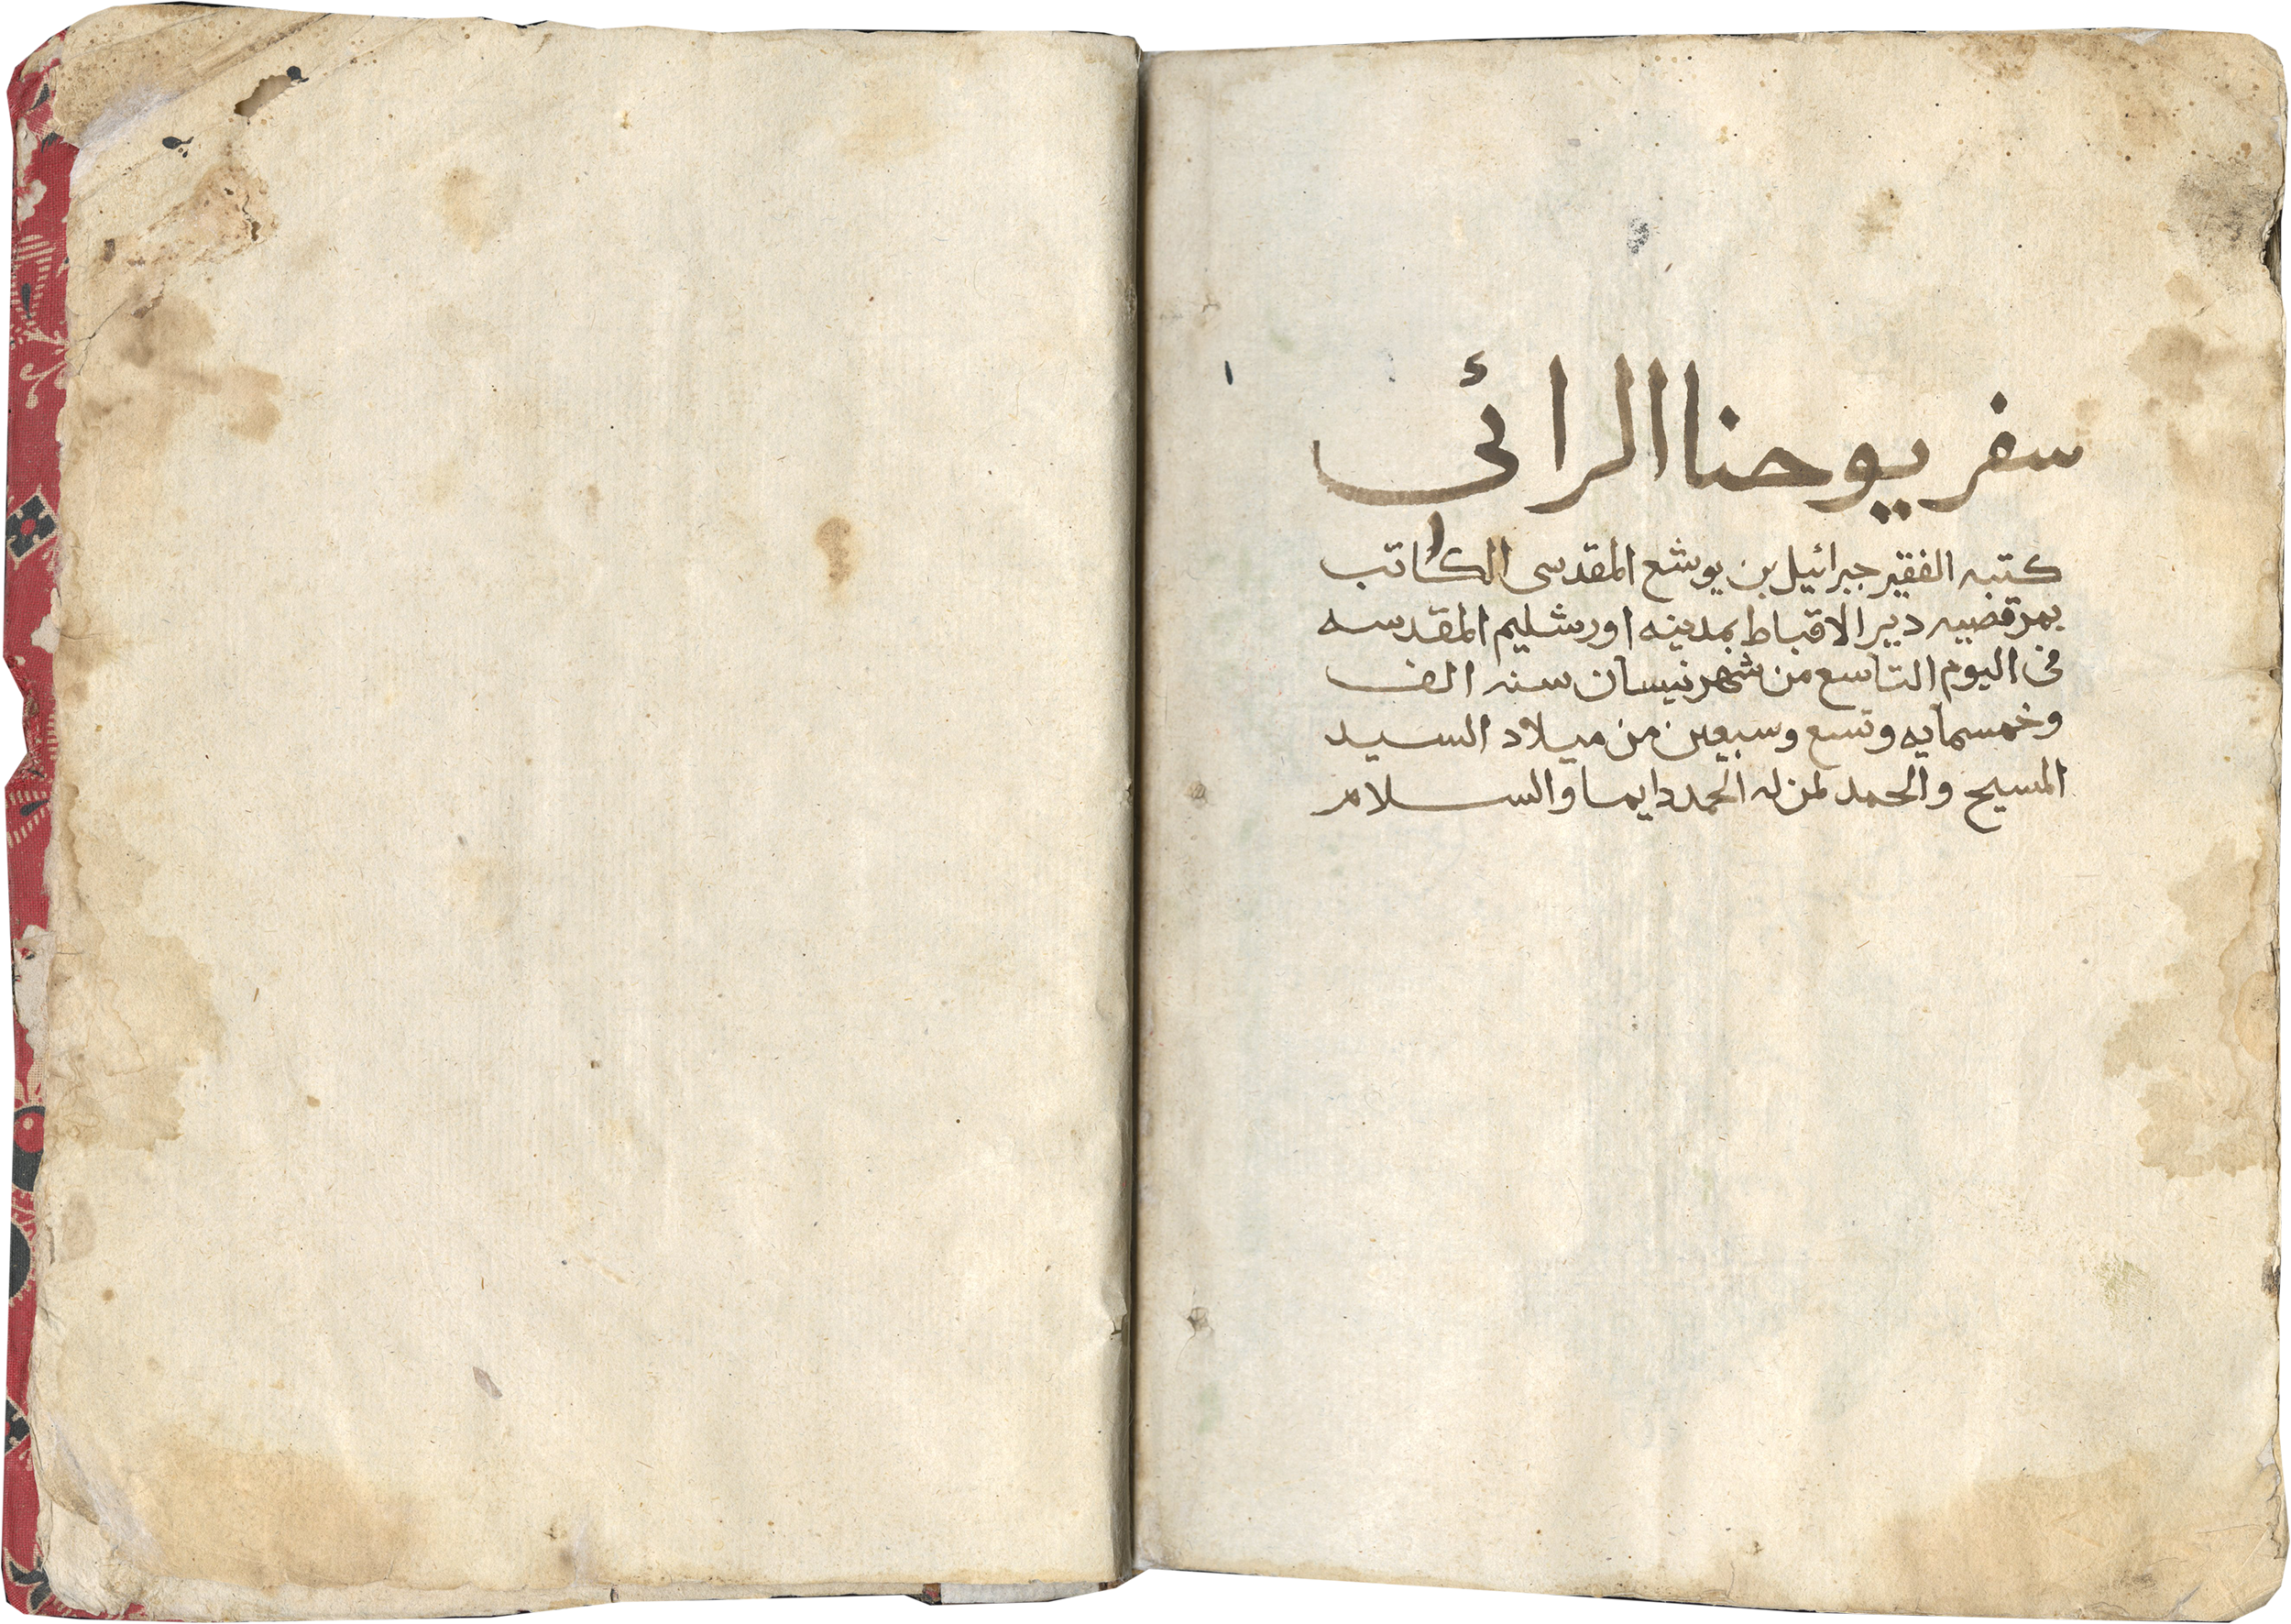 سفر يوحنا الرائى
كتبه الفقير جبرائيل بن يوشع المقدسى الكاتب
بمرقصيه دير الاقباط بمدينه اورشليم المقدسه
فى اليوم التاسع من شهر نيسان سنه الف
وخمسمايه وتسع وسبعين من ميلاد السيد
المسيح والحمد لمن له الحمد دايما والسلام